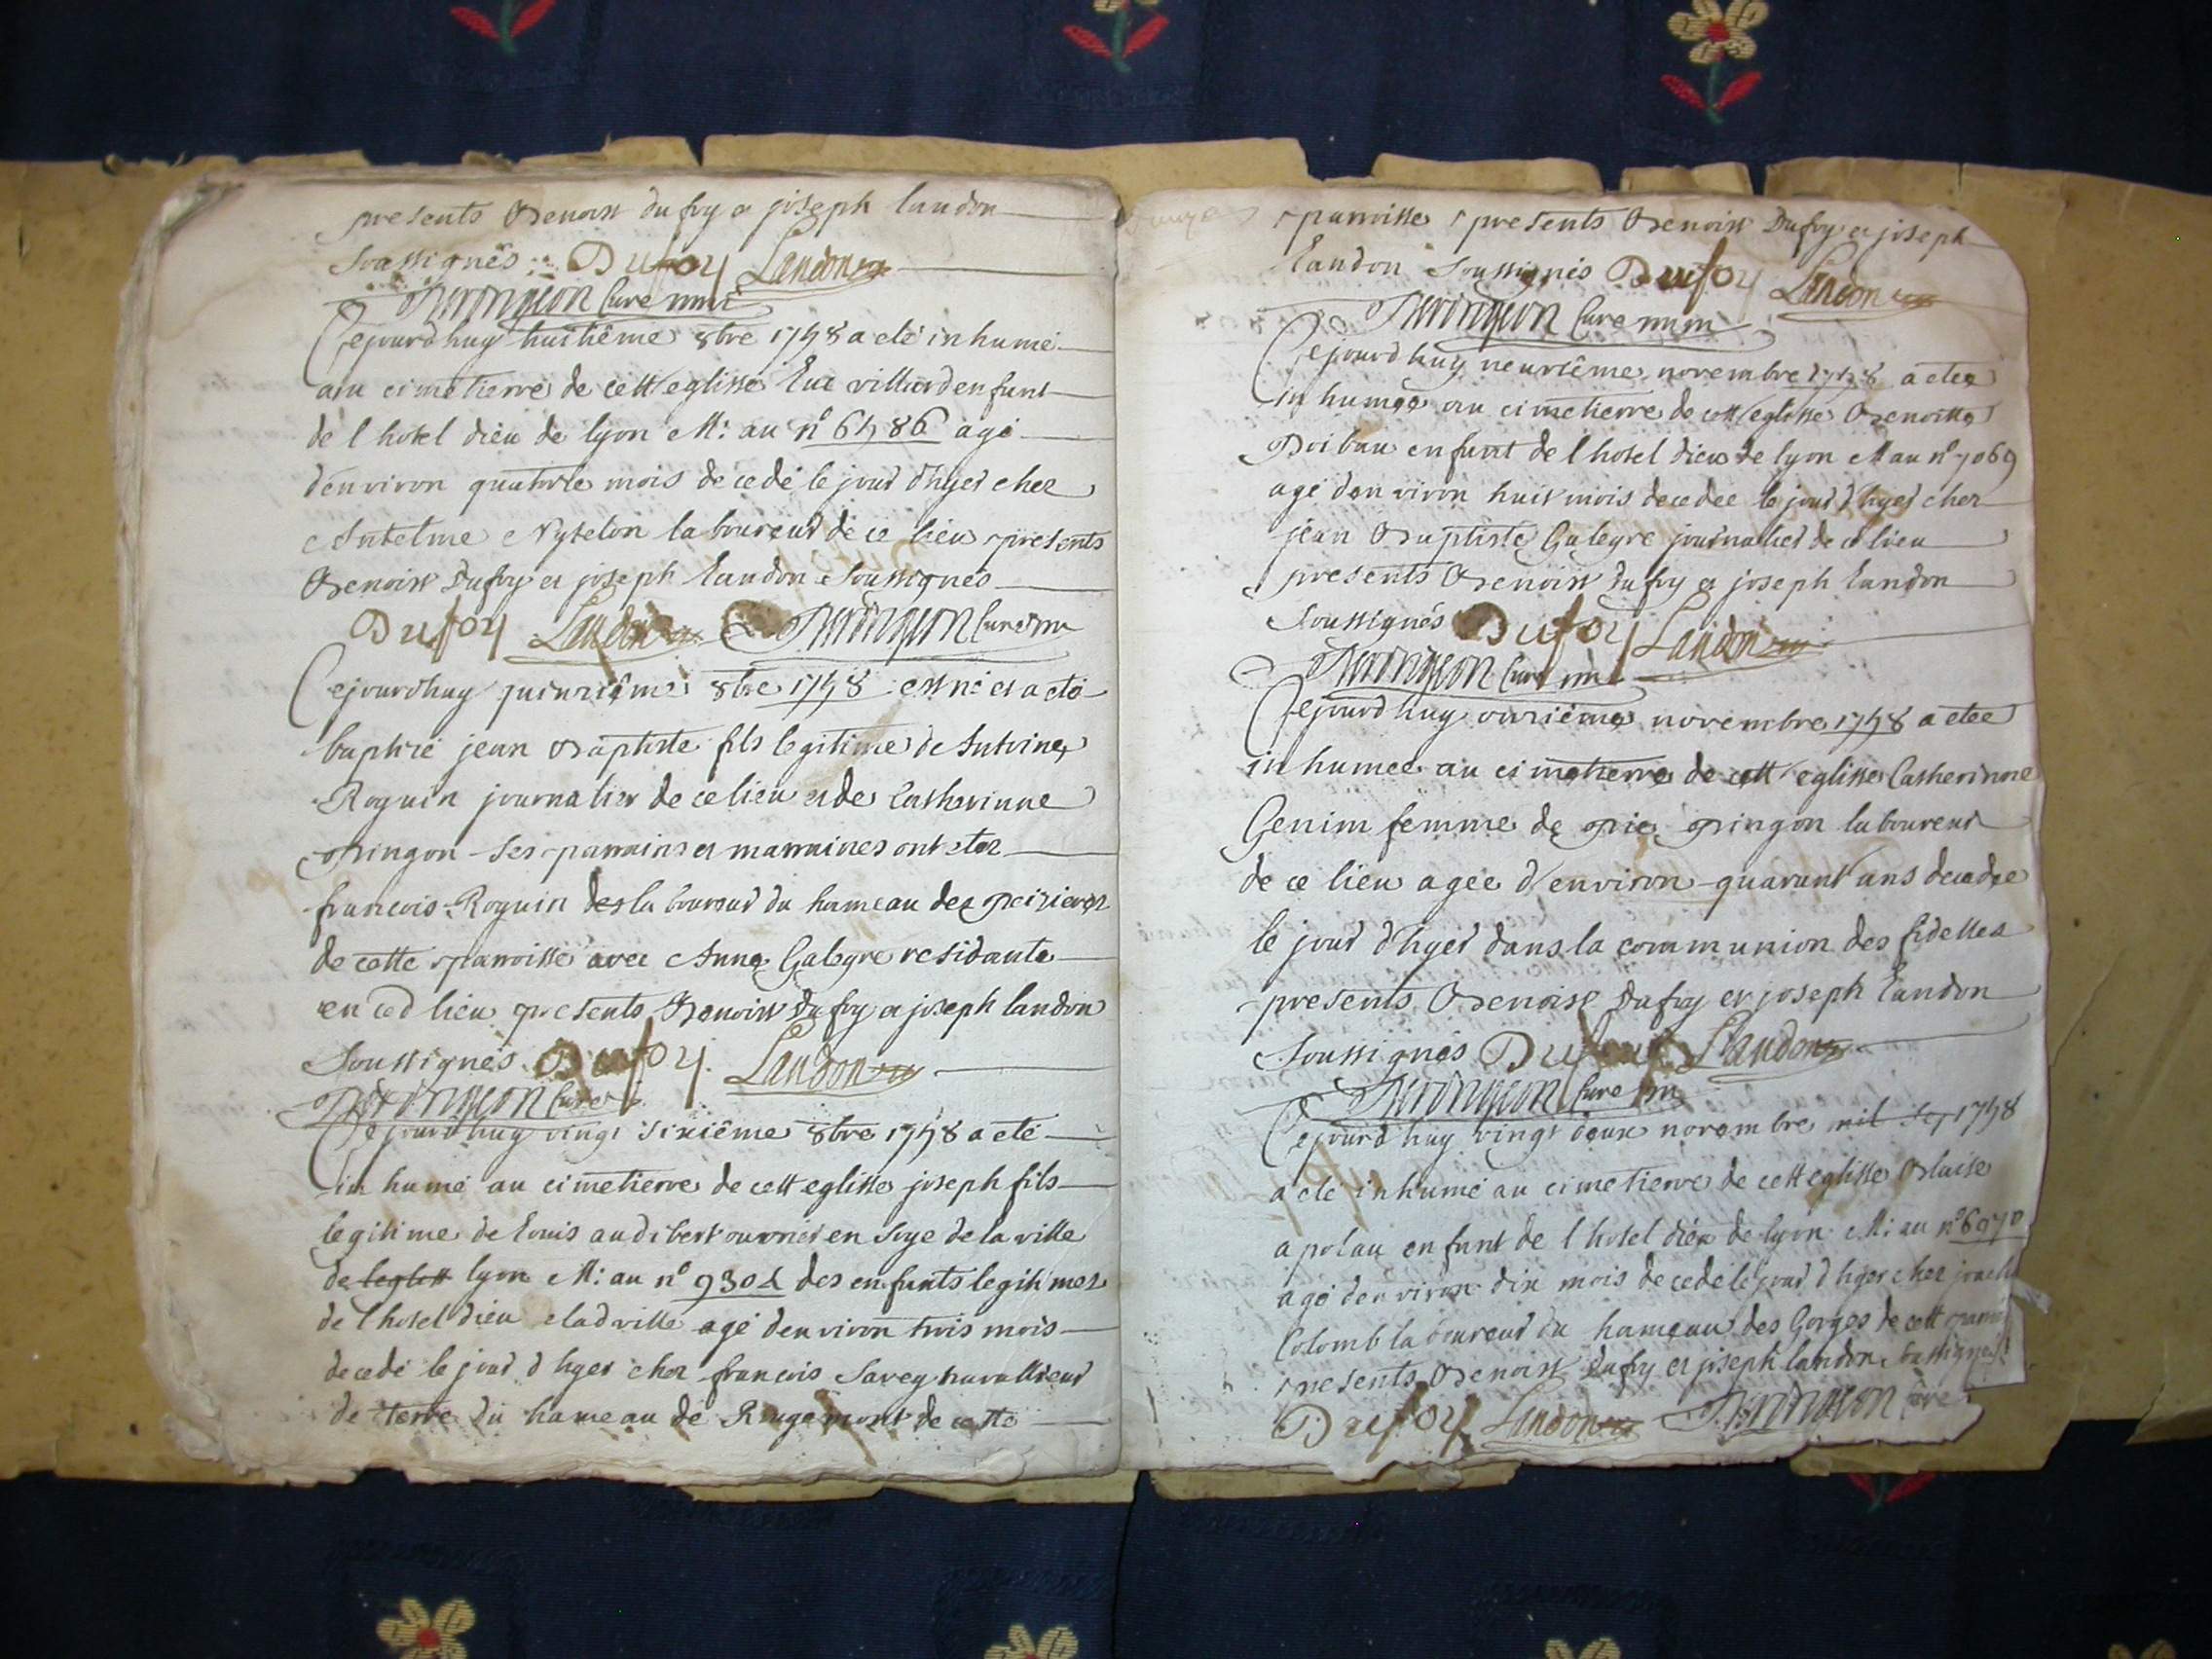 presents Benoist dufoy et joseph landon
Soussignés Dufoy Landon
curé
Cejourdhuy huitiême 8bre 1748 a eté inhumé
au cimetierre de cett eglisse Luc villiard enfant
de l hotel dieu de lyon M: au n° 6486 agé
d'environ quatorze mois decedé le jour d'hyer chez
Antelme laboureur de ce lieu presents
Benoist Dufoy et joseph Landon Soussignés
Dufoy Landon curé
Cejourdhuy quinziême 8bre 1748 est né et a eté
baptizé jean Baptiste fils legitime de Antoine
Roguin journalier de ce lieu et de Catherinne
pringon Ses parrains et marraines ont etez
francois Roguin des laboureur du hameau des
de cette parroisse avec Anne Galegre residante
en ced lieu presents Benoist Dufoy et joseph landon
Soussignés Dufoy Landon
curé
Cejourdhuy vingt sixiême 8bre 1748 a eté
inhumé au cimetierre de cett eglisse joseph fils
legitime de Louis audibert ouvrier en Soye de la ville
de lyon M: au n° 9304 des enfants legitimes
de l hotel dieu de lad ville agé denviron trois mois
decedé le jour d hyer chez francois Savey travallieur
de terre du hameau de Rougemont de cette
parroisse presents Benoist Dufoy et joseph
Landon Soussignés Dufoy Landon
curé
Cejourdhuy neuviême novembre 1748 a etée
inhumée au cimetierre de cett eglisse Benoitte
enfant de l hotel dieu de lyon M au n° 7069
agé denviron huit mois decedée le jour d hyer chez
jean Baptiste Galegre journalier de ce lieu
presents Benoist dufoy et joseph Landon
Soussignés Dufoy Landon
curé
Cejourdhuy onziême novembre 1748 a etée
inhumée au cimetierre de cett eglisse Catherinne
Genim femme de pre pringon laboureur
de ce lieu agée d'environ quarant ans decedée
le jour d'hyer dans la communion des fidelles
presents Benoist Dufoy et joseph Landon
Soussignés Dufoy Landon
curé
Cejourdhuy vingt deux novembre mil sep 1748
a eté inhumé au cimetierre de cett eglisse Blaise
apolau enfant de l hotel dieu de lyon M: au n° 6970
agé denviron dix mois decedé le jour d hyer chez
Colomb laboureur du hameau des Gorges de cett
presents Benoist Dufoy et joseph landon Soussignés
Dufoy Landon curé